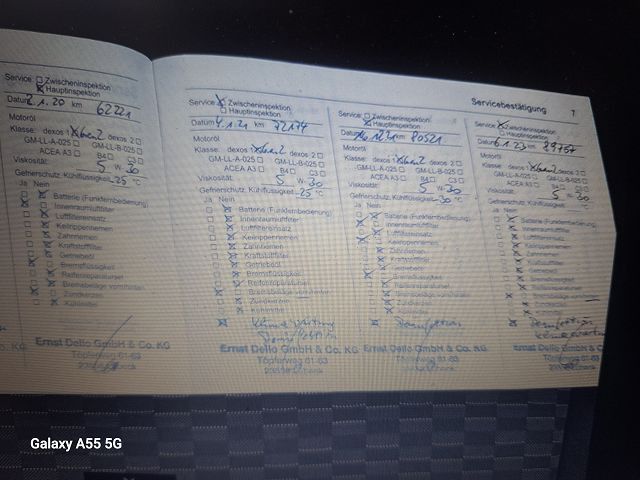 Servicebestätigung 7
Service: Zwischeninspektion
Hauptinspektion
Datum 2.1.20 km 62221
Motoröl
Klasse: dexos 1 dexos 2
GM-LL-A-025 GM-LL-B-025
ACEA A3 B4 C3
Viskosität: 5 W- 30
Gefrierschutz, Kühlflüssigkeit -25 °C
Ja Nein
Batterie (Funkfernbedienung)
Innenraumluftfilter
Luftfiltereinsatz
Keilrippenriemen
Zahnriemen
Kraftstofffilter
Getriebeöl
Bremsflüssigkeit
Reifenreparaturset
Bremsbeläge vorn/hinten
Zündkerzen
Kühlmittel
Ernst Dello GmbH & Co. KG
Töpferweg 61-63
Service: Zwischeninspektion
Hauptinspektion
Datum 4.1.21 km 72174
Motoröl
Klasse: dexos 1 dexos 2
GM-LL-A-025 GM-LL-B-025
ACEA A3 B4 C3
Viskosität: 5 W- 30
Gefrierschutz, Kühlflüssigkeit -25 °C
Ja Nein
Batterie (Funkfernbedienung)
Innenraumluftfilter
Luftfiltereinsatz
Keilrippenriemen
Zahnriemen
Kraftstofffilter
Getriebeöl
Bremsflüssigkeit
Reifenreparaturset
Bremsbeläge vorn/hinten
Zündkerzen
Kühlmittel
Klimawartung
Ernst Dello GmbH & Co. KG
Töpferweg 61-63
Service: Zwischeninspektion
Hauptinspektion
Datum km 80521
Motoröl
Klasse: dexos 1 dexos 2
GM-LL-A-025 GM-LL-B-025
ACEA A3 B4 C3
Viskosität: 5 W- 30
Gefrierschutz, Kühlflüssigkeit -30 °C
Ja Nein
Batterie (Funkfernbedienung)
Innenraumluftfilter
Luftfiltereinsatz
Keilrippenriemen
Zahnriemen
Kraftstofffilter
Getriebeöl
Bremsflüssigkeit
Reifenreparaturset
Bremsbeläge vorn/hinten
Zündkerzen
Kühlmittel
Ernst Dello GmbH & Co. KG
Töpferweg 61-63
Service: Zwischeninspektion
Hauptinspektion
Datum 6.1.23 km 89757
Motoröl
Klasse: dexos 1 dexos 2
GM-LL-A-025 GM-LL-B-025
ACEA A3 B4 C3
Viskosität: 5 W- 30
Gefrierschutz, Kühlflüssigkeit -30 °C
Ja Nein
Batterie (Funkfernbedienung)
Innenraumluftfilter
Luftfiltereinsatz
Keilrippenriemen
Zahnriemen
Kraftstofffilter
Getriebeöl
Bremsflüssigkeit
Reifenreparaturset
Bremsbeläge vorn/hinten
Zündkerzen
Kühlmittel
Ernst Dello GmbH & Co. KG
Töpferweg 61-63
Galaxy A55 5G